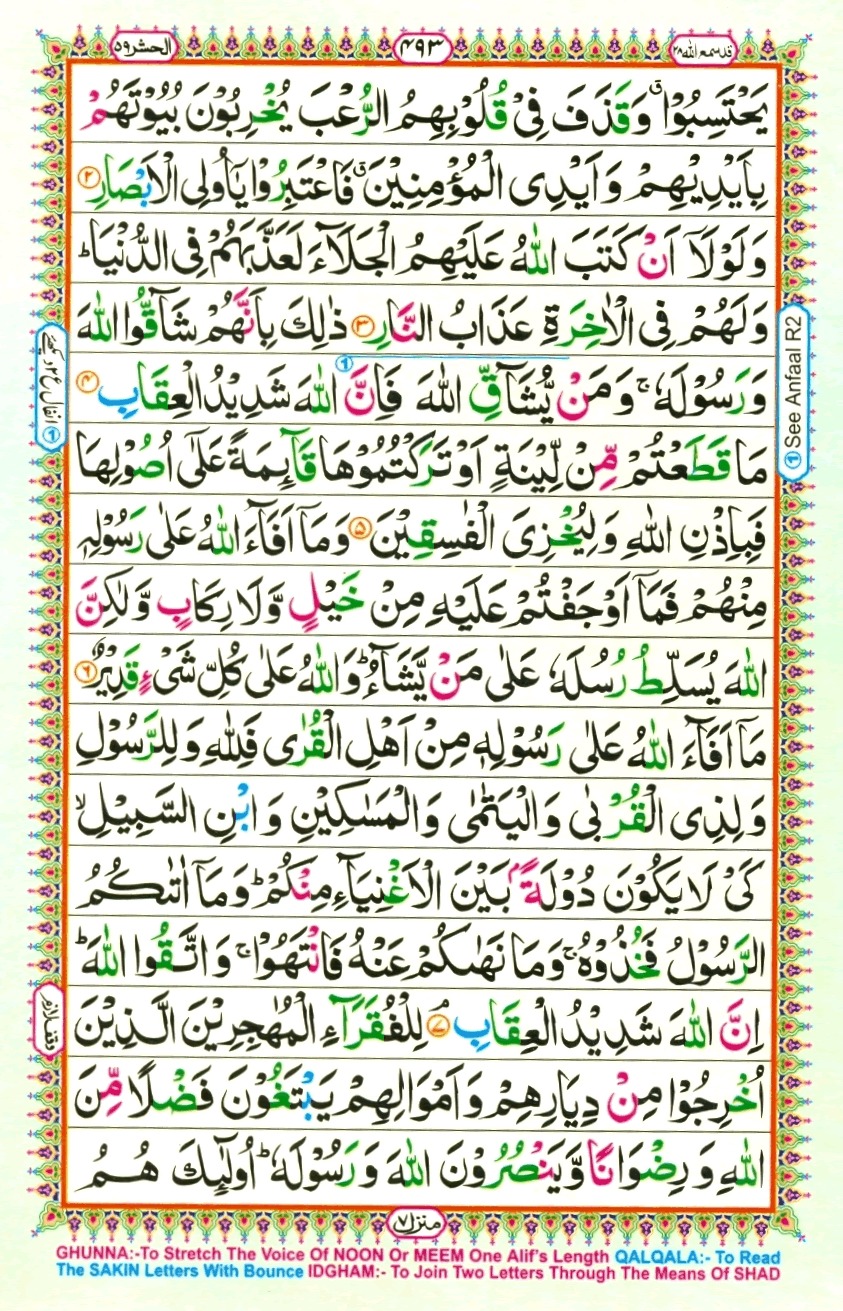 الحشر ۵۹
۴۹۳
قد سمع الله ۲۸
يَحْتَسِبُوْا ۗ وَقَذَفَ فِىْ قُلُوْبِهِمُ الرُّعْبَ يُخْرِبُوْنَ بُيُوْتَهُمْ
بِاَيْدِيْهِمْ وَاَيْدِى الْمُؤْمِنِيْنَ ۗ فَاعْتَبِرُوْا يٰۤاُولِى الْاَبْصَارِ ۲
وَلَوْلَاۤ اَنْ كَتَبَ اللّٰهُ عَلَيْهِمُ الْجَلَاۤءَ لَعَذَّبَهُمْ فِى الدُّنْيَا ؕ
وَلَهُمْ فِى الْاٰخِرَةِ عَذَابُ النَّارِ ۳ ذٰلِكَ بِاَنَّهُمْ شَآقُّوا اللّٰهَ
وَرَسُوْلَهٗ ۚ وَمَنْ يُّشَآقِّ اللّٰهَ فَاِنَّ اللّٰهَ شَدِيْدُ الْعِقَابِ ۴
مَا قَطَعْتُمْ مِّنْ لِّيْنَةٍ اَوْ تَرَكْتُمُوْهَا قَآئِمَةً عَلٰٓى اُصُوْلِهَا
فَبِاِذْنِ اللّٰهِ وَلِيُخْزِىَ الْفٰسِقِيْنَ ۵ وَمَاۤ اَفَآءَ اللّٰهُ عَلٰى رَسُوْلِهٖ
مِنْهُمْ فَمَاۤ اَوْجَفْتُمْ عَلَيْهِ مِنْ خَيْلٍ وَّلَا رِكَابٍ وَّلٰكِنَّ
اللّٰهَ يُسَلِّطُ رُسُلَهٗ عَلٰى مَنْ يَّشَآءُ ؕ وَاللّٰهُ عَلٰى كُلِّ شَىْءٍ قَدِيْرٌ ۶
مَاۤ اَفَآءَ اللّٰهُ عَلٰى رَسُوْلِهٖ مِنْ اَهْلِ الْقُرٰى فَلِلّٰهِ وَلِلرَّسُوْلِ
وَلِذِى الْقُرْبٰى وَالْيَتٰمٰى وَالْمَسٰكِيْنِ وَابْنِ السَّبِيْلِ ۙ
كَىْ لَا يَكُوْنَ دُوْلَةًۢ بَيْنَ الْاَغْنِيَآءِ مِنْكُمْ ؕ وَمَاۤ اٰتٰىكُمُ
الرَّسُوْلُ فَخُذُوْهُ ۚ وَمَا نَهٰىكُمْ عَنْهُ فَانْتَهُوْا ۚ وَاتَّقُوا اللّٰهَ ؕ
اِنَّ اللّٰهَ شَدِيْدُ الْعِقَابِ ۘ ۷ لِلْفُقَرَآءِ الْمُهٰجِرِيْنَ الَّذِيْنَ
اُخْرِجُوْا مِنْ دِيَارِهِمْ وَاَمْوَالِهِمْ يَبْتَغُوْنَ فَضْلًا مِّنَ
اللّٰهِ وَرِضْوَانًا وَّيَنْصُرُوْنَ اللّٰهَ وَرَسُوْلَهٗ ؕ اُولٰٓئِكَ هُمُ
① See Anfaal R2
① انفال ع۲ دیکھئے
وقف لازم
منزل ۷
GHUNNA:-To Stretch The Voice Of NOON Or MEEM One Alif's Length QALQALA:- To Read
The SAKIN Letters With Bounce IDGHAM:- To Join Two Letters Through The Means Of SHAD